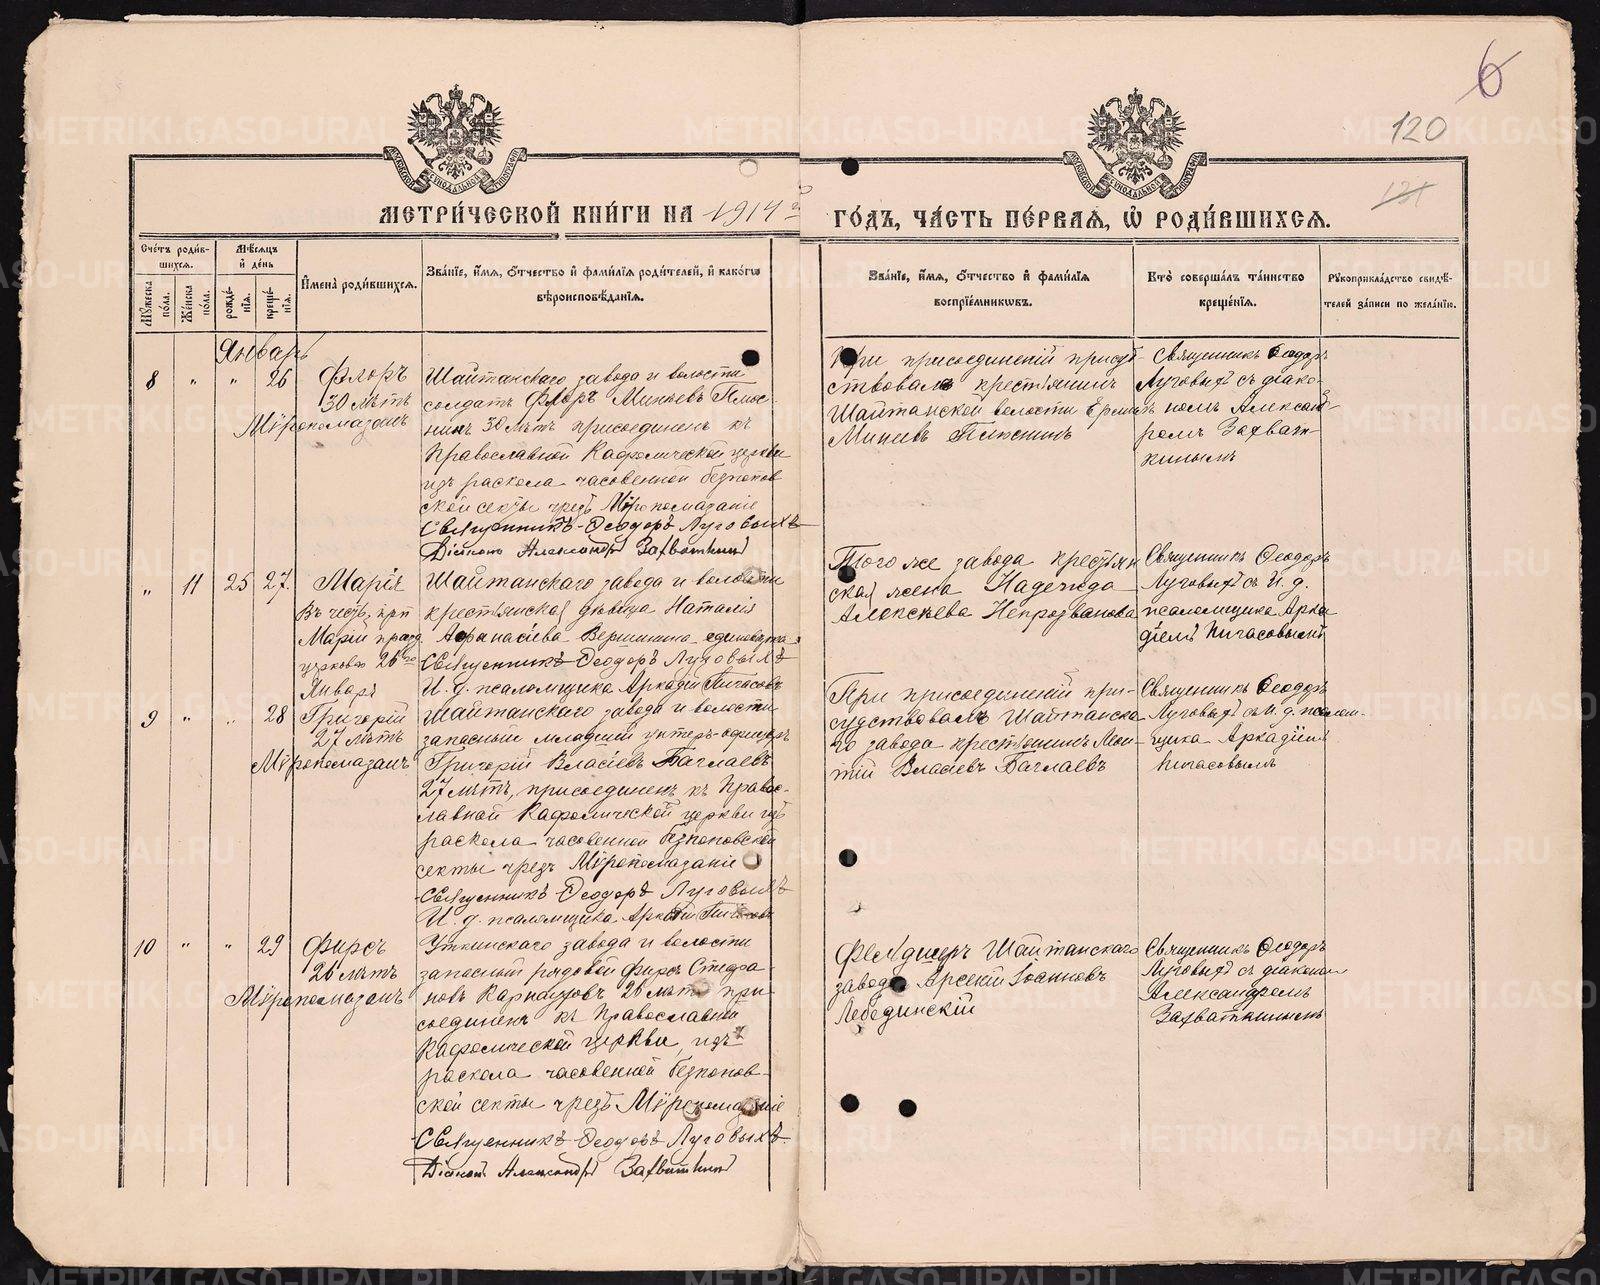 6
120
121
МОСКОВСКОЙ СѴНОДАЛЬНОЙ ТИПОГРАФІИ
МОСКОВСКОЙ СѴНОДАЛЬНОЙ ТИПОГРАФІИ
МЕТРИ́ЧЕСКОЙ КНИ́ГИ НА 1914 й ГО́ДЪ, ЧА́СТЬ ПЕ́РВАЯ, Ѡ РОДИ́ВШИХСЯ.
Сче́тъ роди́в-
шихся.
Мꙋ́жеска по́ла.
Же́нска по́ла.
Мѣ́сяцъ
и де́нь
рожде́нія.
креще́нія.
Имена̀ роди́вшихся.
Зва́ніе, и́мя, о́тчество и фами́лія роди́телей, и како́гѡ
вѣроисповѣ́данія.
Зва́ніе, и́мя, о́тчество и фами́лія
воспріе́мникѡвъ.
Кто̀ соверша́лъ та́инство
креще́нія.
Рꙋкоприкла́дство свидѣ́-
телей за́писи по жела́нію.
Январь
8 " " 26
Флоръ
30 лѣтъ
Мѵропомазанъ
Шайтанскаго завода и волости
солдатъ Флоръ Минѣевъ Плюс-
нинъ 30 лѣтъ присоединенъ къ
Православной Каѳолической церкви
изъ раскола часовенной безпопов
ской секты чрезъ Мѵропомазаніе
Священникъ Ѳеодоръ Луговыхъ
Діаконъ Александръ Захваткинъ
При присоединеніи присут-
ствовалъ крестьянинъ
Шайтанской волости Ермилъ
Минѣевъ Плюснинъ
Священникъ Ѳеодоръ
Луговыхъ съ діако-
номъ Александ-
ромъ Захват-
кинымъ
" 11 25 27
Марія
Въ честь прп
Маріи празд.
церковію 26 го
Января
Шайтанскаго завода и волости
крестьянская дѣвица Наталія
Аѳанасіева Вершинина единовѣрка
Священникъ Ѳеодоръ Луговыхъ
И. д. псаломщика Аркадій Пичасовъ
Того же завода крестьян
ская жена Надежда
Алексѣева Непрозванова
Священникъ Ѳеодоръ
Луговыхъ съ И. д.
псаломщика Арка
діемъ Пичасовымъ
9 " " 28
Григорій
27 лѣтъ
Мѵропомазанъ
Шайтанскаго завода и волости
запасный младшій унтеръ-офицеръ
Григорій Власіевъ Баглаевъ
27 лѣтъ, присоединенъ къ Право-
славной Каѳолической церкви изъ
раскола часовенной безпоповской
секты чрезъ Мѵропомазаніе
Священникъ Ѳеодоръ Луговыхъ
И. д. псаломщика Аркадій Пичасовъ
При присоединеніи при-
сутствовалъ Шайтанска
го завода крестьянинъ
Власіевъ Баглаевъ
Священникъ Ѳеодоръ
Луговыхъ съ И. д. псалом-
щика Аркадіемъ
Пичасовымъ
10 " " 29
Фирсъ
26 лѣтъ
Мѵропомазанъ
Уткинскаго завода и волости
запасный рядовой Фирсъ Стефа-
новъ Карпауховъ 26 лѣтъ при-
соединенъ къ Православной
Каѳолической церкви, изъ
раскола часовенной безпопов-
ской секты чрезъ Мѵропомазаніе
Священникъ Ѳеодоръ Луговыхъ
Діаконъ Александръ Захваткинъ
Фельдшеръ Шайтанскаго
завода Арсеній Іоанновъ
Лебединскій
Священникъ Ѳеодоръ
Луговыхъ съ діакономъ
Александромъ
Захваткинымъ
METRIKI.GASO-URAL.RU